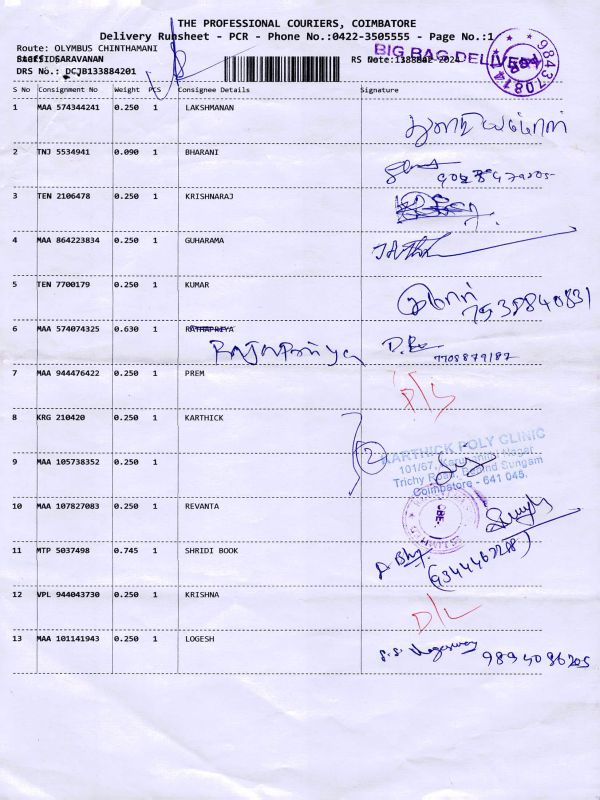 THE PROFESSIONAL COURIERS, COIMBATORE
Delivery Runsheet - PCR - Phone No.:0422-3505555 - Page No.:1
Route: OLYMBUS CHINTHAMANI
SARAVANAN
RS Note:
2024
BIG BAG DELIVERY
984370814
DRS No.: DCJB133884201
S No Consignment No Weight PCS Consignee Details Signature
1 MAA 574344241 0.250 1 LAKSHMANAN
2 TNJ 5534941 0.090 1 BHARANI
3 TEN 2106478 0.250 1 KRISHNARAJ
4 MAA 864223834 0.250 1 GUHARAMA
5 TEN 7700179 0.250 1 KUMAR
7538840831
6 MAA 574074325 0.630 1 RATHAPRIYA
7708879182
7 MAA 944476422 0.250 1 PREM
D/L
8 KRG 210420 0.250 1 KARTHICK
2
KARTHICK POLY CLINIC
101/67, Karumbhu Nagar,
Trichy Road, Behind Sungam
Coimbatore - 641 045.
9 MAA 105738352 0.250 1
10 MAA 107827083 0.250 1 REVANTA
CBE.
11 MTP 5037498 0.745 1 SHRIDI BOOK
12 VPL 944043730 0.250 1 KRISHNA
D/L
13 MAA 101141943 0.250 1 LOGESH
9894096205